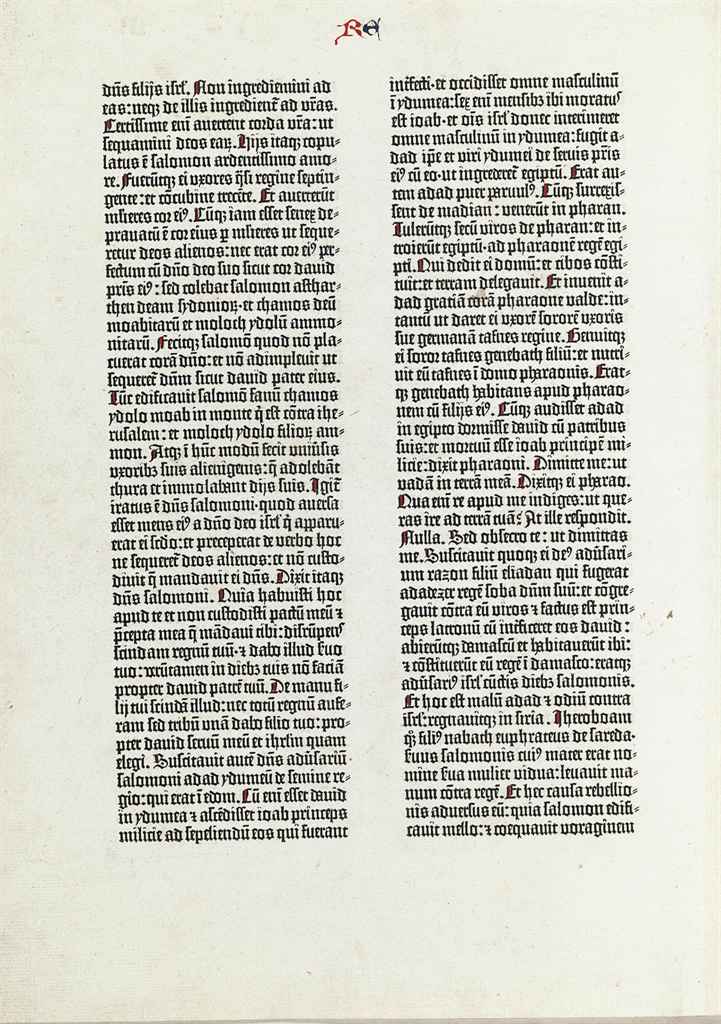 RE
dñs filijs isrl'. Non ingrediemini ad
eas: neq̃ de illis ingredient̃ ad vr̃as.
Certissime em̃ auertent corda vr̃a: ut
sequamini deos eaꝝ. Hijs itaq̃ copu-
latus ẽ salomon ardentissimo amo-
re. Fuerũtq̃ ei vxores q̃si regine septin-
gente: et cõcubine trecẽte. Et auerterũt
mlieres cor eiꝰ. Cũq̃ iam esset senex de-
prauatũ ẽ cor eius ꝑ mlieres ut seque-
retur deos alienos: nec erat cor eiꝰ ꝑ-
fectum cũ dño deo suo sicut cor dauid
pr̃is eiꝰ: sed colebat salomon asthar-
then deam sydonioꝝ· et chamos deũ
moabitarũ et moloch ydolũ ammo-
nitarũ. Fecitq̃ salomõ quod nõ pla-
cuerat corã dño: et nõ adimpleuit ut
sequeret̃ dñm sicut dauid pater eius.
Tũc edificauit salomõ fanũ chamos
ydolo moab in monte q̃ est cõtra ihe-
rusalem: et moloch ydolo filioꝝ am-
mon. Atq̃ ĩ hũc modũ fecit vniũsis
vxoribꝫ suis alienigenis: q̃ adolebãt
thura et immolabant dijs suis. Igit̃
iratus ẽ dñs salomoni· quod auersa
esset mens eiꝰ a dño deo isrl' q̃ apparu-
erat ei scd̃o: et preceperat de verbo hoc
ne sequeret̃ deos alienos: et nõ custo-
diuit q̃ mandauit ei dñs. Dixit itaq̃
dñs salomoni. Quia habuisti hoc
apud te et non custodisti pactũ meũ ⁊
p̃cepta mea q̃ mãdaui tibi: disrũpẽs
scindam regnũ tuũ· ⁊ dabo illud ſuo
tuo: verũtamen in diebꝫ tuis nõ faciã
propter dauid patrẽ tuũ. De manu fi-
lij tui scindã illud: nec totũ regnũ aufe-
ram sed tribũ vnã dabo filio tuo: pro-
pter dauid seruũ meũ et ihrl̃m quam
elegi. Suscitauit autẽ dñs adũsariũ·
salomoni adad ydumeũ de semine re-
gio: qui erat ĩ edom. Cũ em̃ esset dauid
in ydumea ⁊ ascẽdisset ioab princeps
milicie ad sepeliendũ eos qui fuerant
int̃fecti· et occidisset omne masculinũ
ĩ ydumea: sex em̃ mensibꝫ ibi moratꝰ
est ioab· et oĩs isrl' donec interimeret
omne masculinũ in ydumea: fugit a-
dad ip̃e et viri ydumei de seruis pr̃is
eiꝰ cũ eo· ut ingrederet̃ egiptũ. Erat au-
tem adad puer paruulꝰ. Cũq̃ surrexis-
sent de madian: venerũt in pharan.
Tulerũtq̃ secũ viros de pharan: et in-
troierũt egiptũ· ad pharaonẽ regẽ egi-
pti. Qui dedit ei domũ: et cibos cõsti-
tuit: et terram delegauit. Et inuenit a-
dad gratiã corã pharaone valde: in-
tantũ ut daret ei vxorẽ sororẽ vxoris
sue germanã tafnes regine. Genuitq̃
ei soror tafnes genebath filiũ: et nutri-
uit eũ tafnes ĩ domo pharaonis. Erat-
q̃ genebath habitans apud pharao-
nem cũ filijs eiꝰ. Cũq̃ audisset adad
in egipto dormisse dauid cũ patribus
suis: et mortuũ esse ioab principẽ mi-
licie: dixit pharaoni. Dimitte me: ut
vadã in terrã meã. Dixitq̃ ei pharao.
Qua em̃ re apud me indiges: ut que-
ras ire ad terrã tuã? At ille respondit.
Nulla. Sed obsecro te: ut dimittas
me. Suscitauit quoq̃ ei deꝰ adũsari-
um razon filiũ eliadan qui fugerat
adadezer regẽ soba dñm suũ: et cõgre-
gauit cõtra eũ viros ⁊ factus est prin-
ceps latronũ cũ int̃ficeret eos dauid:
abierũtq̃ damascũ et habitauerũt ibi:
⁊ cõstituerũt eũ regẽ ĩ damasco: eratq̃
adũsariꝰ isrl' cũctis diebꝫ salomonis.
Et hoc est malũ adad ⁊ odiũ contra
isrl': regnauitq̃ in siria. Iheroboam
q̃q̃ filiꝰ nabath euphrateus de sareda·
ſuus salomonis cuiꝰ mater erat no-
mine ſua mulier vidua: leuauit ma-
num cõtra regẽ. Et hec causa rebellio-
nis aduersus eũ: quia salomon edifi-
cauit mello: ⁊ coequauit voraginem